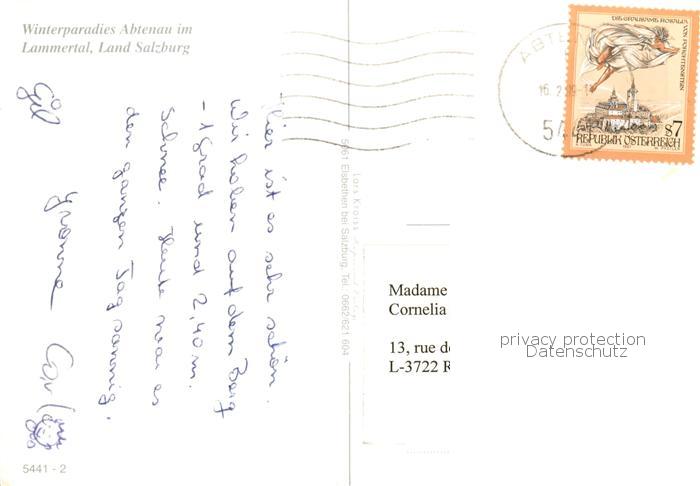 Winterparadies Abtenau im
Lammertal, Land Salzburg
Hier ist es sehr schön.
Wir haben auf dem Berg
- 1 Grad und 2,40 m.
Schnee. Heute war es
den ganzen Tag sonnig.
Yvonne
5441 - 2
Lars Kroiss
5061 Elsbethen bei Salzburg, Tel. 0662/621 604
ABTEN
16. 2.
544
DIE GRAUSAME ROSALIA VON FORCHTENSTEIN
S7
REPUBLIK ÖSTERREICH
Madame
Cornelia
13, rue de
L-3722 R
privacy protection
Datenschutz